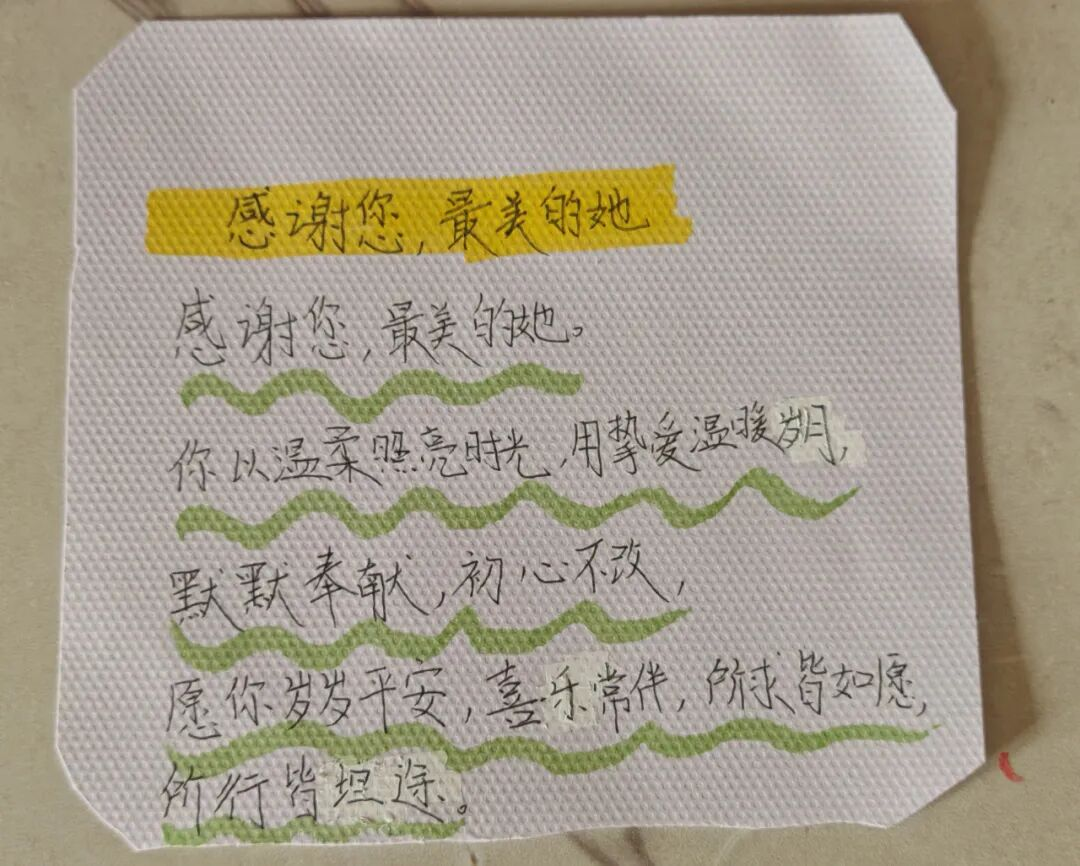 感谢您,最美的她
感谢您,最美的她。
你以温柔照亮时光,用挚爱温暖岁月,
默默奉献,初心不改,
愿你岁岁平安,喜乐常伴,所求皆如愿,
所行皆坦途。